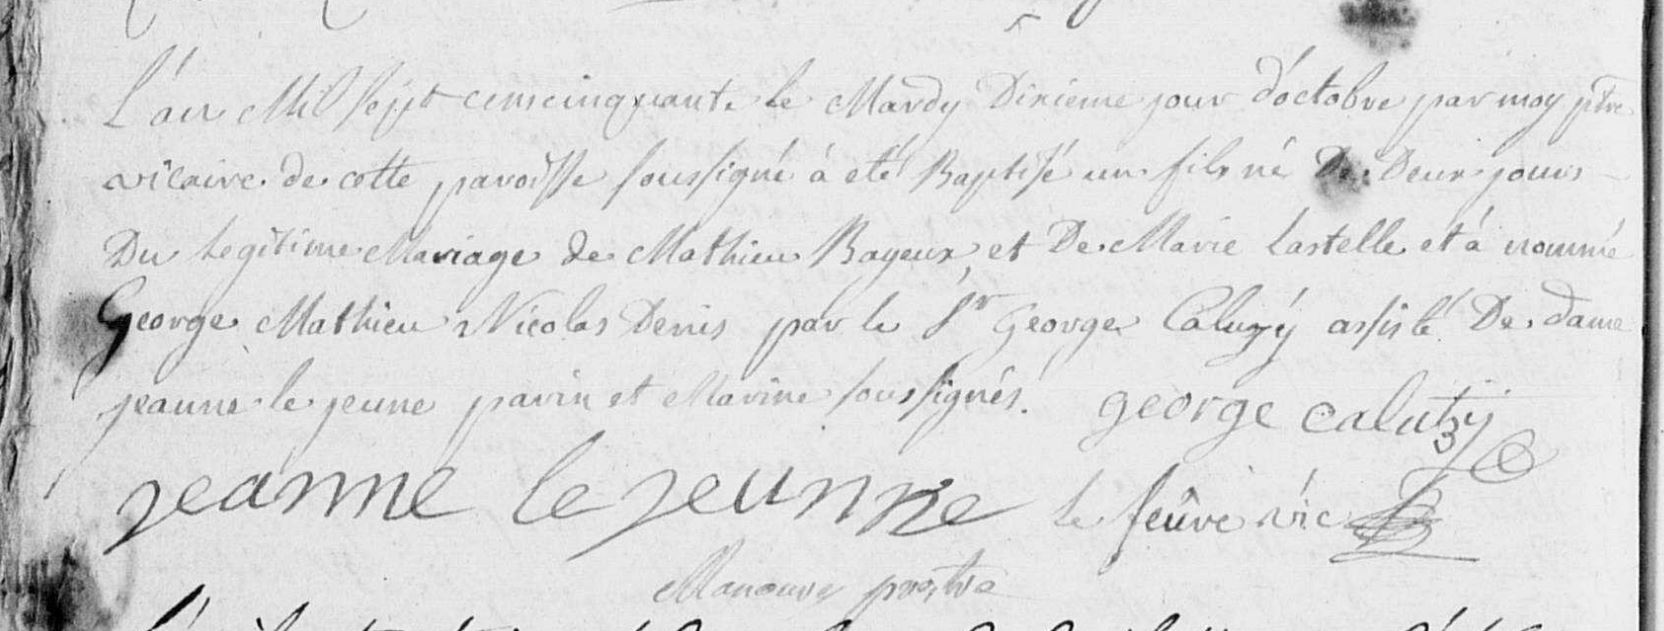 L'an Mil sept cens cinquante le Mardy Dixieme jour d'octobre par moy ptre
vicaire de cette paroisse soussigné à eté Baptisé un fils né De Deux jours
Du legitime Mariage de Mathieu Bayeux et De Marie Lastelle et à nommé
George Mathieu Nicolas Denis par le Sr George Caluzÿ assisté De dame
jeanne le jeune parin et Marine soussignés. george calutzÿ
jeanne le jeunne le feûvre vic
Manouvr prestre